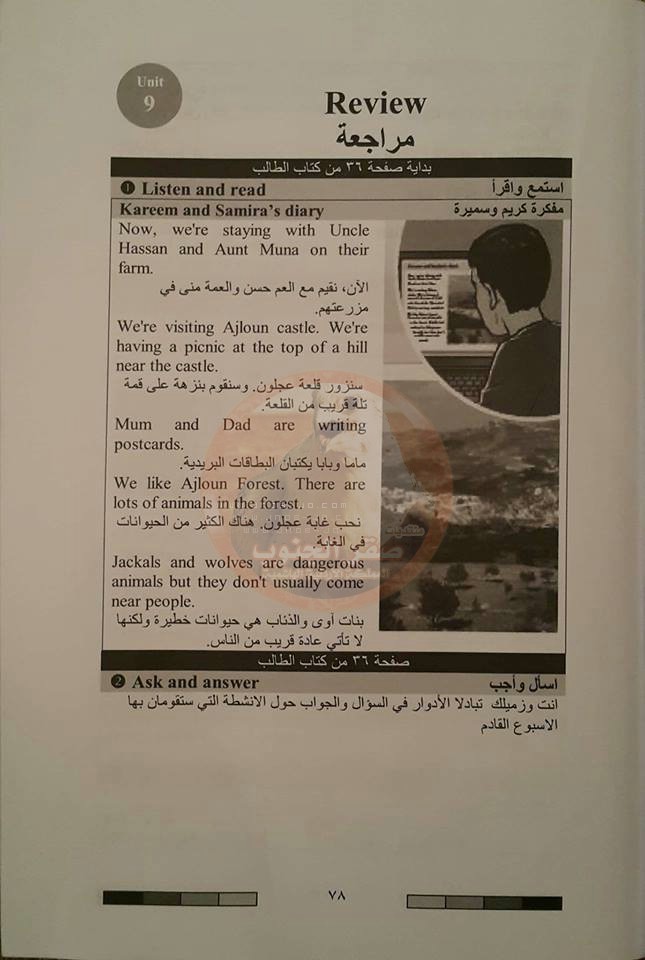 Unit
9
Review
مراجعة
بداية صفحة ٣٦ من كتاب الطالب
❶ Listen and read استمع واقرأ
Kareem and Samira's diary مفكرة كريم وسميرة
Now, we're staying with Uncle
Hassan and Aunt Muna on their
farm.
الآن، نقيم مع العم حسن والعمة منى في
مزرعتهم.
We're visiting Ajloun castle. We're
having a picnic at the top of a hill
near the castle.
سنزور قلعة عجلون. وسنقوم بنزهة على قمة
تلة قريب من القلعة.
Mum and Dad are writing
postcards.
ماما وبابا يكتبان البطاقات البريدية.
We like Ajloun Forest. There are
lots of animals in the forest.
نحب غابة عجلون. هناك الكثير من الحيوانات
في الغابة.
Jackals and wolves are dangerous
animals but they don't usually come
near people.
بنات آوى والذئاب هي حيوانات خطيرة ولكنها
لا تأتي عادة قريب من الناس.
منتديات
صقر الجنوب
صفحة ٣٦ من كتاب الطالب
❷ Ask and answer اسأل وأجب
انت وزميلك تبادلا الأدوار في السؤال والجواب حول الانشطة التي ستقومان بها
الاسبوع القادم
٧٨